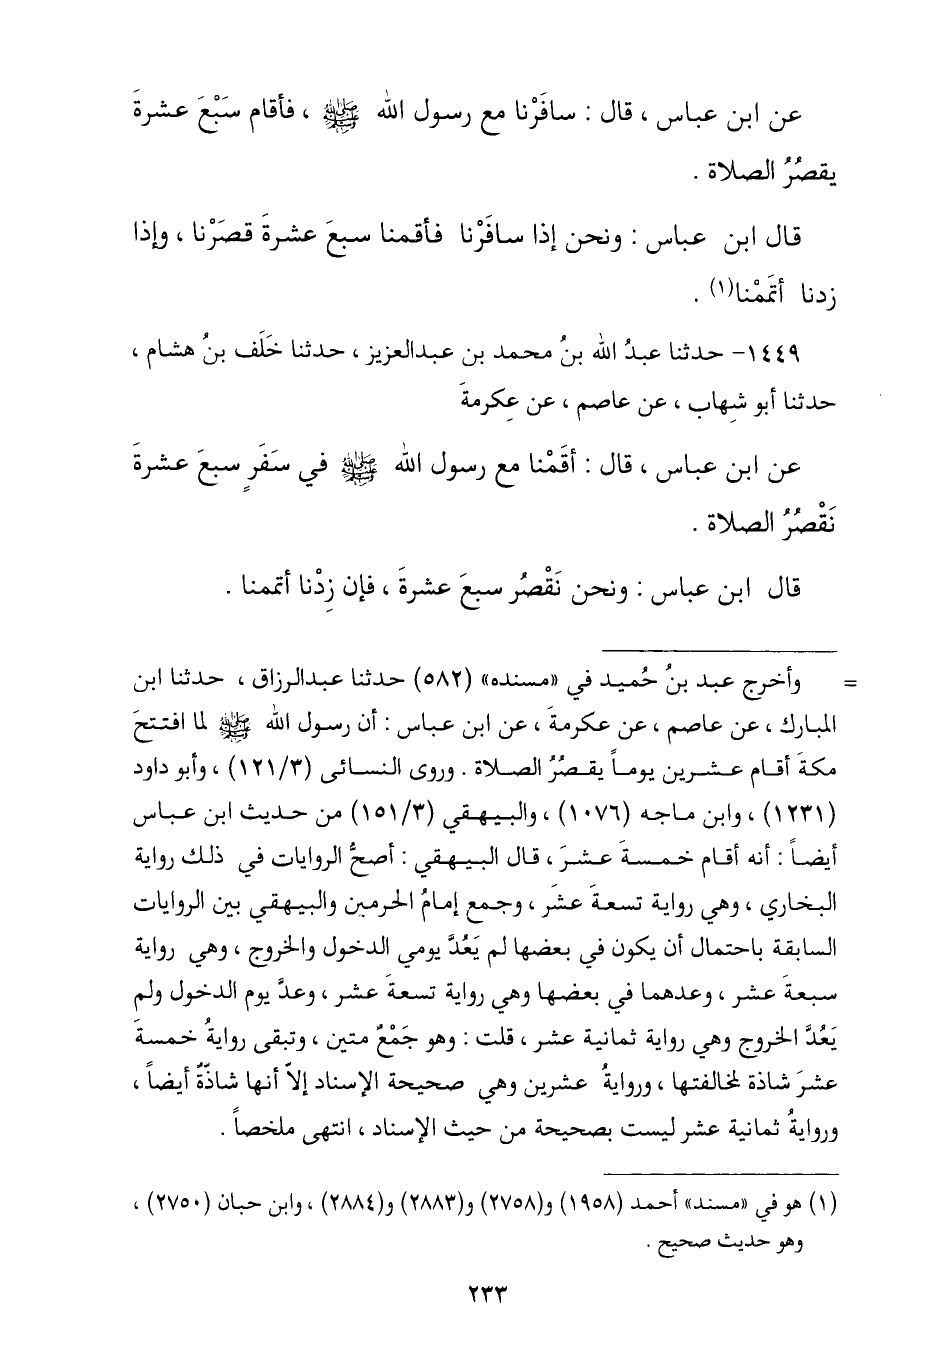 عن ابن عباس ، قال : سافَرْنا مع رسول الله ﷺ ، فأقام سَبْعَ عشرةَ
يقصُرُ الصلاة .
قال ابن عباس : ونحن إذا سافَرْنا فأقمنا سبعَ عشرةَ قصَرْنا ، وإذا
زدنا أتمَمْنا(١) .
١٤٤٩- حدثنا عبدُ الله بنُ محمد بن عبدالعزيز ، حدثنا خَلَف بنُ هشام ،
حدثنا أبو شهاب ، عن عاصم ، عن عِكرمةَ
عن ابن عباس ، قال : أقَمْنا مع رسول الله ﷺ في سَفَرٍ سبعَ عشرةَ
نَقْصُرُ الصلاة .
قال ابن عباس : ونحن نَقْصُر سبعَ عشرةَ ، فإن زِدْنا أتممنا .
= وأخرج عبد بنُ حُميد في «مسنده» (٥٨٢) حدثنا عبدالرزاق ، حدثنا ابن
المبارك ، عن عاصم ، عن عكرمةَ ، عن ابن عباس : أن رسول الله ﷺ لما افتتحَ
مكةَ أقام عشرين يوماً يقصُرُ الصلاة . وروى النسائي (١٢١/٣) ، وأبو داود
(١٢٣١) ، وابن ماجه (١٠٧٦) ، والبيهقي (١٥١/٣) من حديث ابن عباس
أيضاً : أنه أقام خمسةَ عشرَ ، قال البيهقي : أصحُّ الروايات في ذلك رواية
البخاري ، وهي رواية تسعةَ عشَر ، وجمع إمامُ الحرمين والبيهقي بين الروايات
السابقة باحتمال أن يكون في بعضها لم يَعُدَّ يومي الدخول والخروج ، وهي رواية
سبعةَ عشر ، وعدهما في بعضها وهي رواية تسعةَ عشر ، وعدَّ يوم الدخول ولم
يَعُدَّ الخروج وهي رواية ثمانية عشر ، قلت : وهو جَمْعٌ متين ، وتبقى روايةُ خمسةَ
عشرَ شاذة لمخالفتها ، وروايةُ عشرين وهي صحيحة الإسناد إلاّ أنها شاذّةٌ أيضاً ،
وروايةُ ثمانية عشر ليست بصحيحة من حيث الإسناد ، انتهى ملخصاً .
(١) هو في «مسند» أحمد (١٩٥٨) و(٢٧٥٨) و(٢٨٨٣) و(٢٨٨٤) ، وابن حبان (٢٧٥٠) ،
وهو حديث صحيح .
٢٣٣